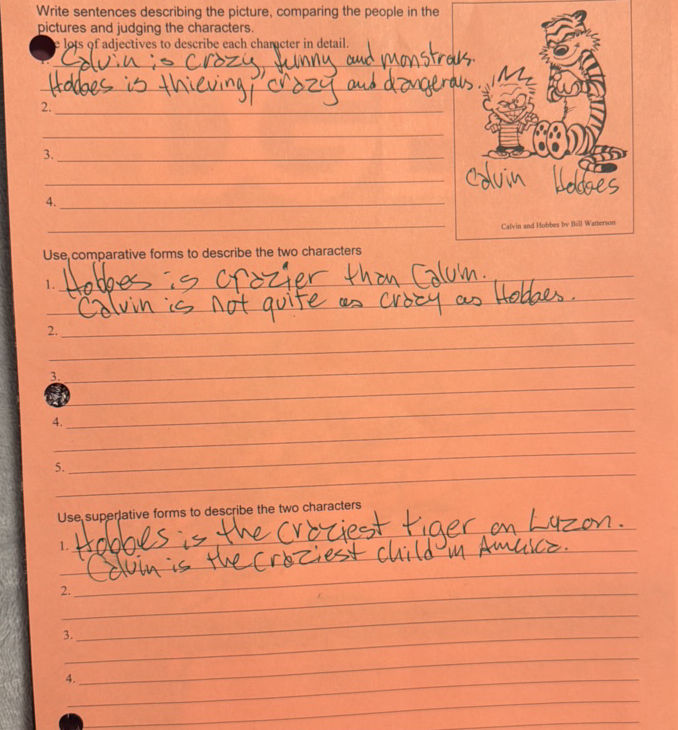 Write sentences describing the picture, comparing the people in the
pictures and judging the characters.
e lots of adjectives to describe each character in detail.
1. Calvin is crazy, funny and monstrous.
Hobbes is thieving, crazy and dangerous.
2.
3.
4.
Calvin Hobbes
Calvin and Hobbes by Bill Watterson
Use comparative forms to describe the two characters
1. Hobbes is crazier than Calvin.
Calvin is not quite as crazy as Hobbes.
2.
3.
4.
5.
Use superlative forms to describe the two characters
1. Hobbes is the craziest tiger on Luzon.
Calvin is the craziest child in America.
2.
3.
4.